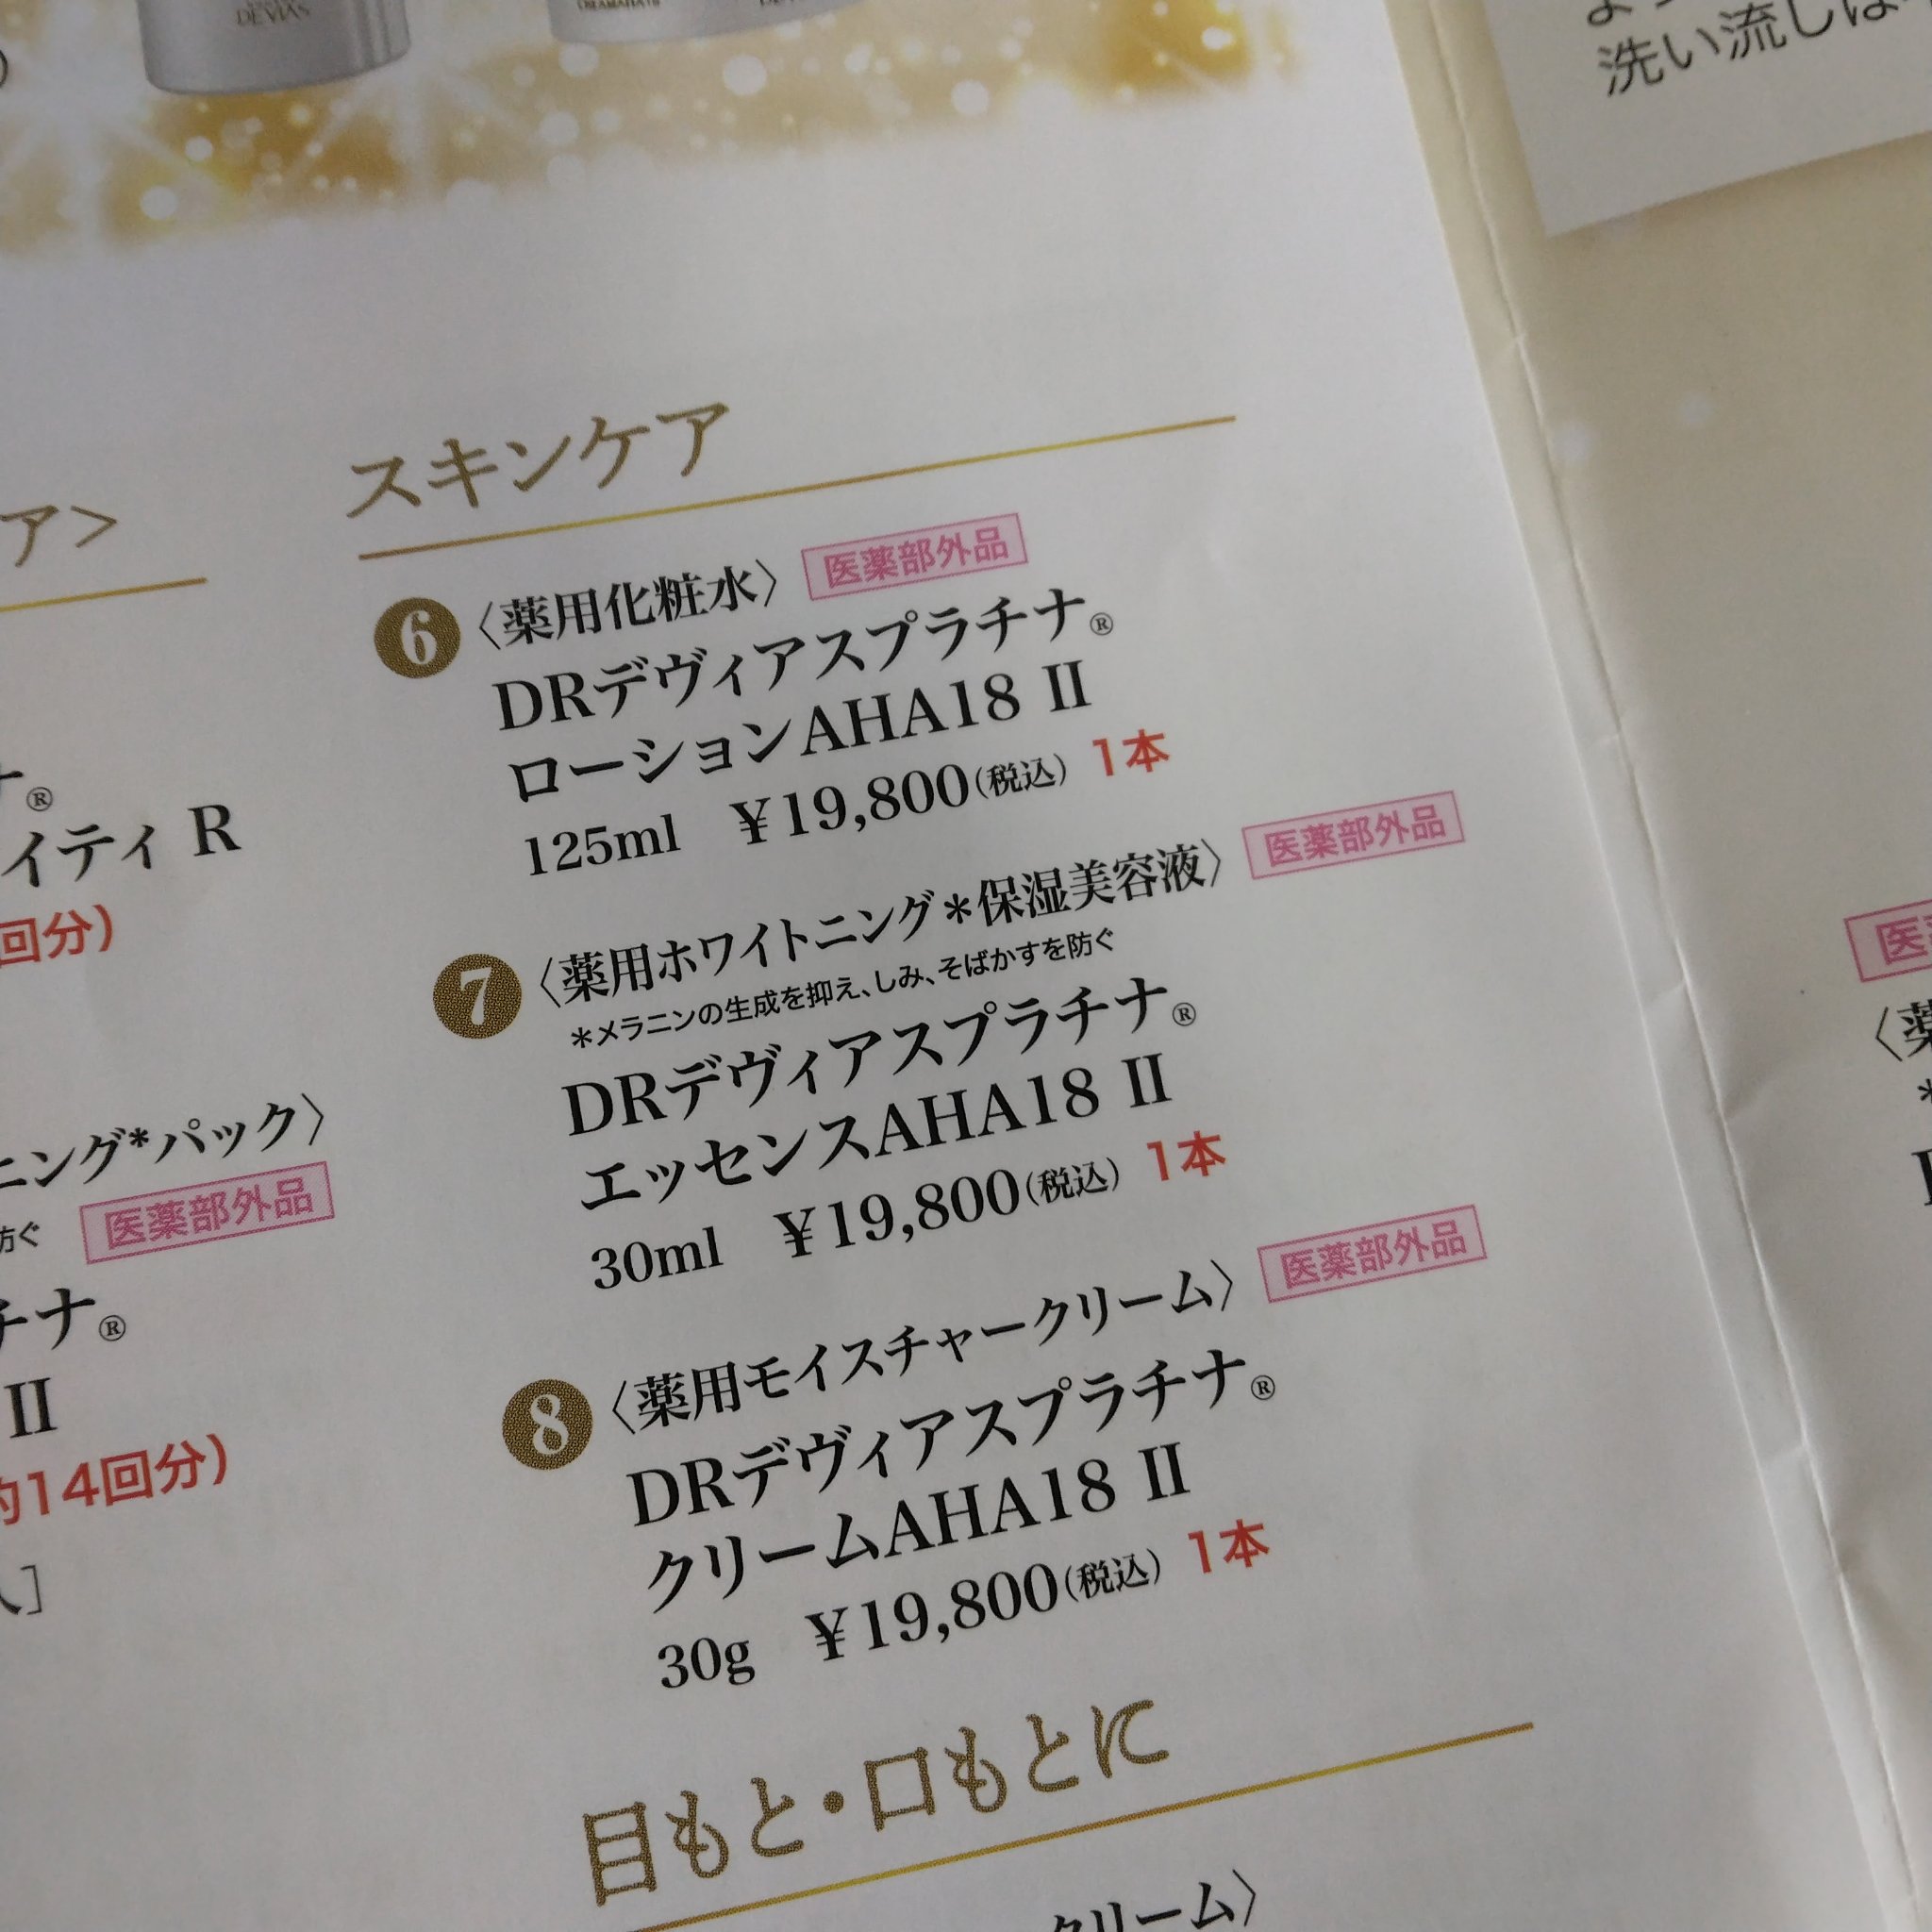 DEVIAS
洗い流し
スキンケア
6 〈薬用化粧水〉 医薬部外品
DRデヴィアスプラチナ®
ローションAHA18 II
125ml ¥19,800(税込) 1本
7 〈薬用ホワイトニング*保湿美容液〉 医薬部外品
*メラニンの生成を抑え、しみ、そばかすを防ぐ
DRデヴィアスプラチナ®
エッセンスAHA18 II
30ml ¥19,800(税込) 1本
8 〈薬用モイスチャークリーム〉 医薬部外品
DRデヴィアスプラチナ®
クリームAHA18 II
30g ¥19,800(税込) 1本
目もと・口もとに
クリーム〉
ア>
ナ®
イティ R
回分)
ニング*パック〉
防ぐ 医薬部外品
チナ®
II
約14回分)
]
医
〈薬